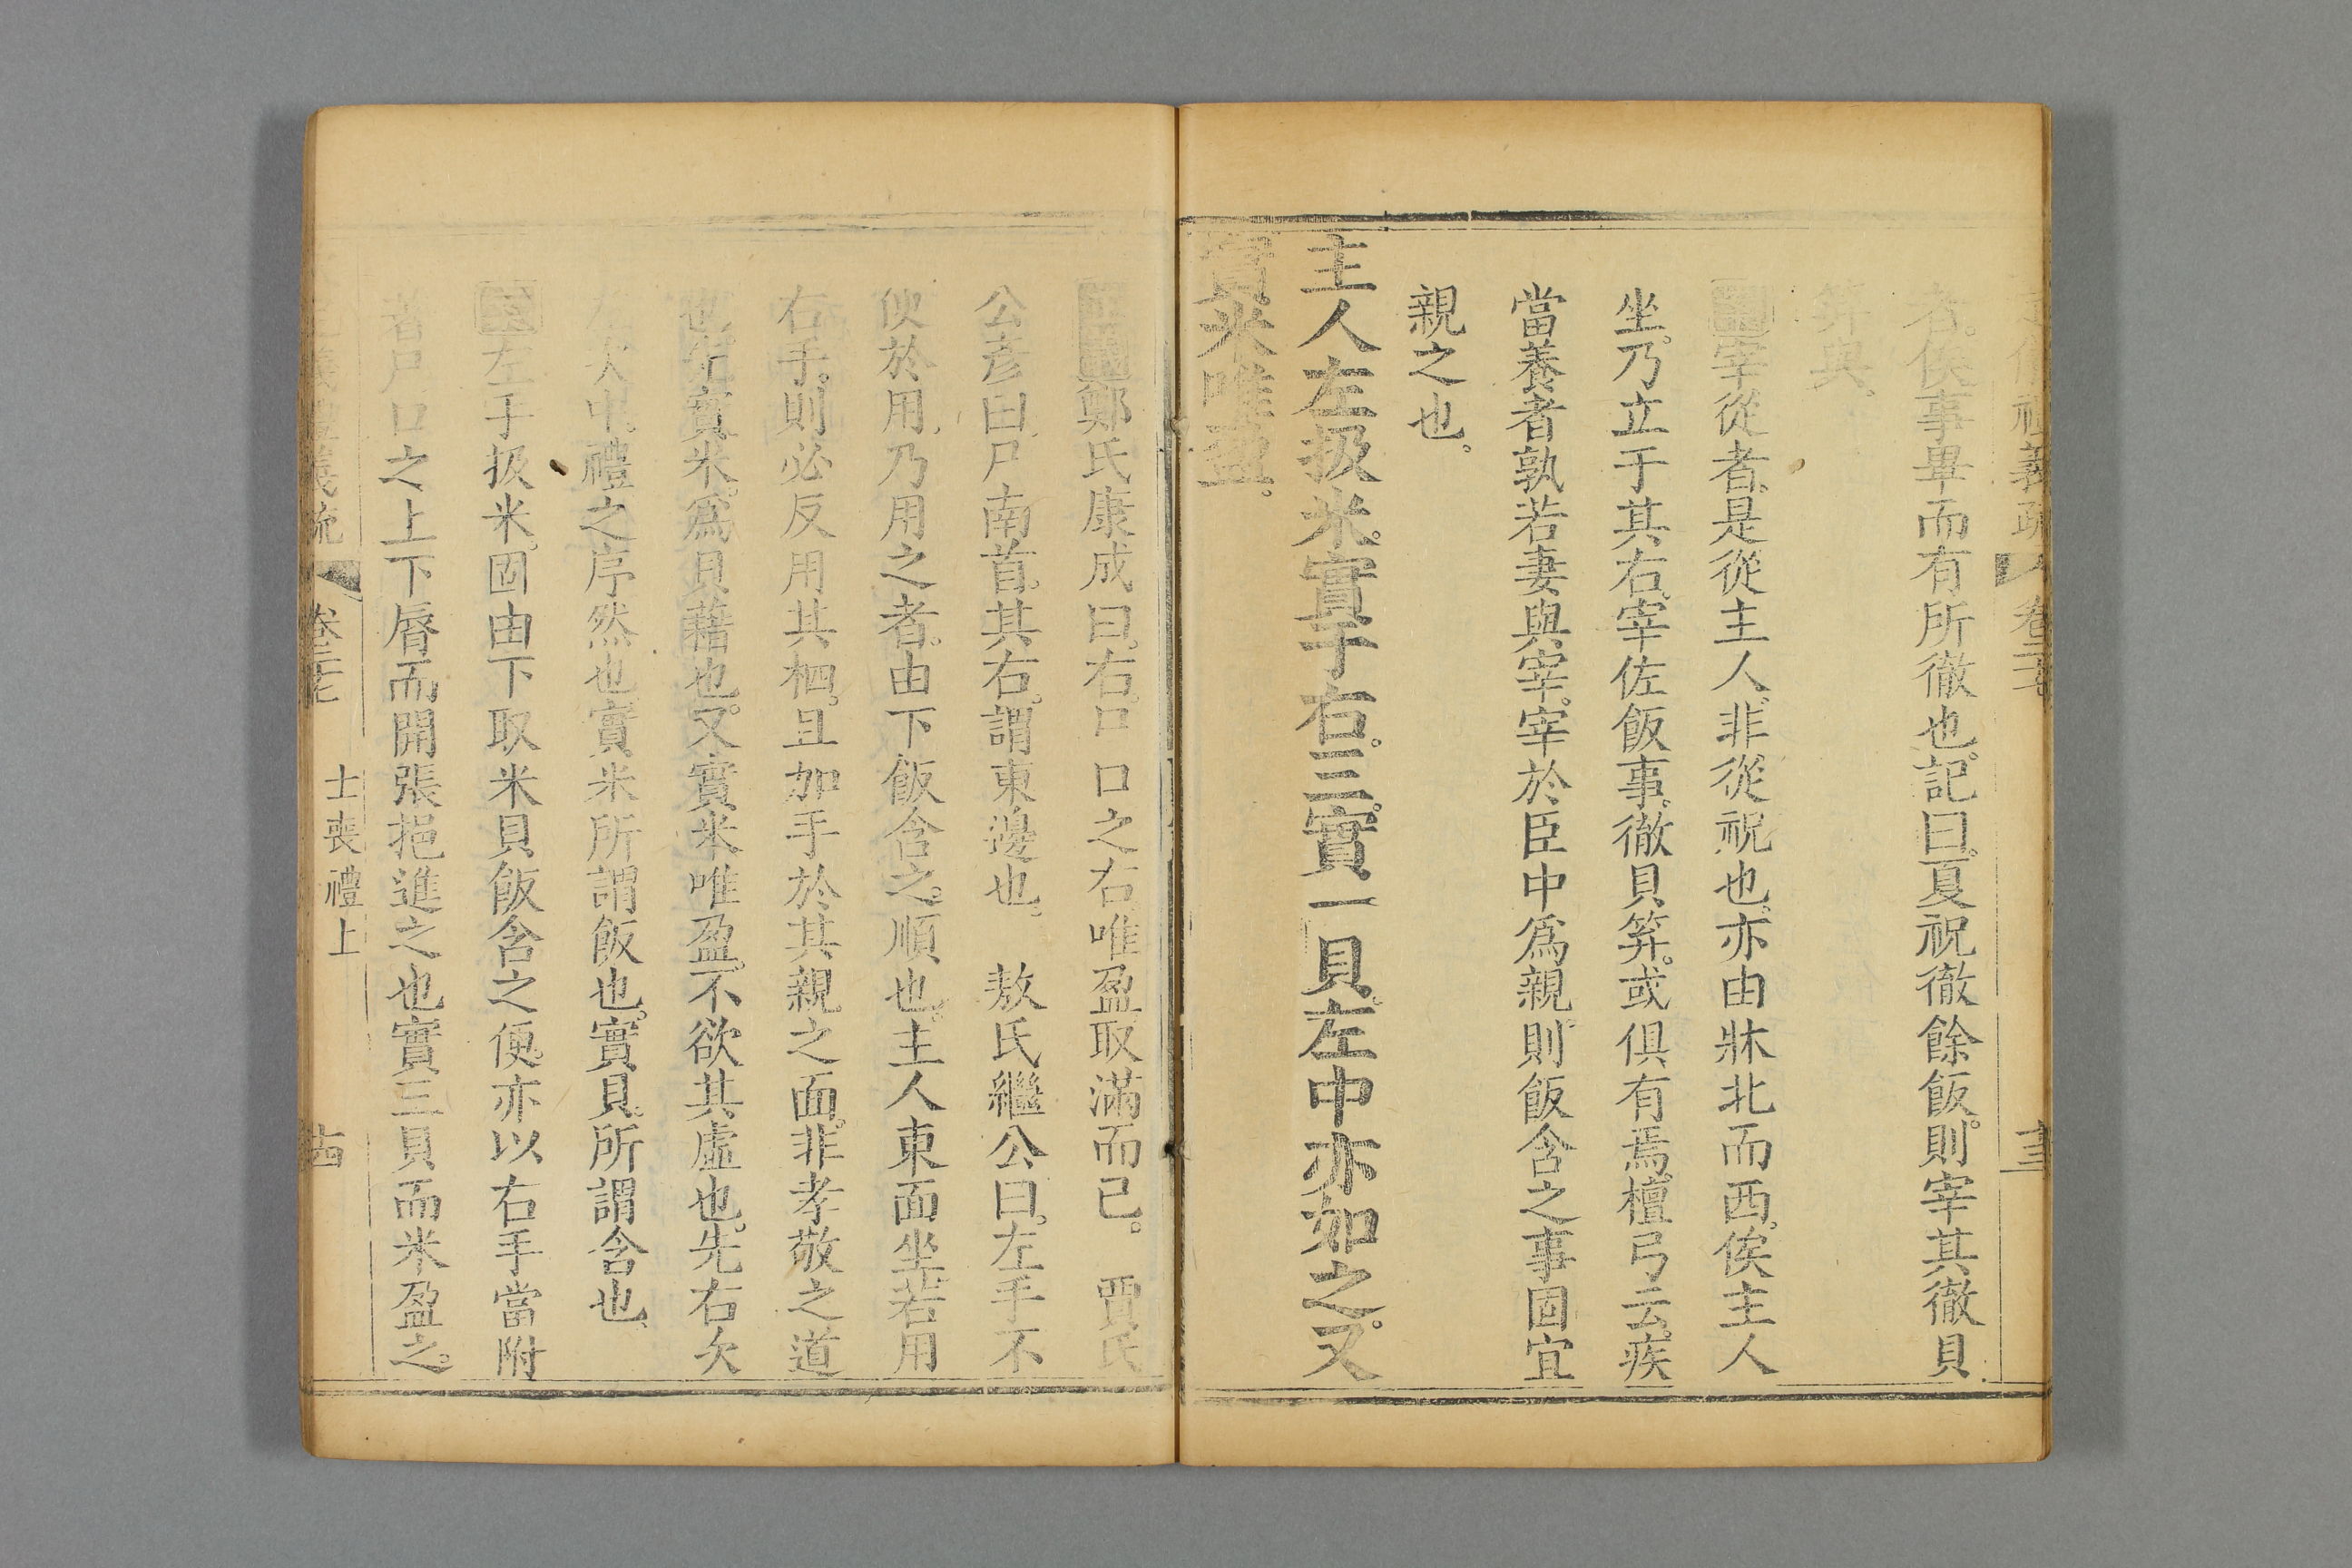 禮義疏 卷三十七 十三
右俟事畢而有所徹也。記曰。夏祝徹餘飯。則宰其徹貝
笲與。
宰從者。是從主人。非從祝也。亦由牀北而西。俟主人
坐。乃立于其右。宰佐飯事。徹貝笲。或俱有焉。檀弓云。疾
當養者孰若妻與宰。宰於臣中爲親。則飯含之事固宜
親之也。
主人左扱米。實于右。三。實一貝。左中亦如之。又
實米唯盈。
鄭氏康成曰。右。口口之右。唯盈取滿而已。 賈氏
公彥曰。尸南首。其右。謂東邊也。 敖氏繼公曰。左手不
便於用。乃用之者。由下飯含之。順也。主人東面坐。若用
右手。則必反用其柶。且加手於其親之面。非孝敬之道
也。先實米。爲貝藉也。又實米唯盈。不欲其虛也。先右次
左次中。禮之序然也。實米所謂飯也。實貝。所謂含也。
左手扱米。固由下取米貝飯含之便。亦以右手當附
者尸口之上下脣而開張挹進之也。實三貝而米盈之。
禮義疏 卷三十七 士喪禮上 十四